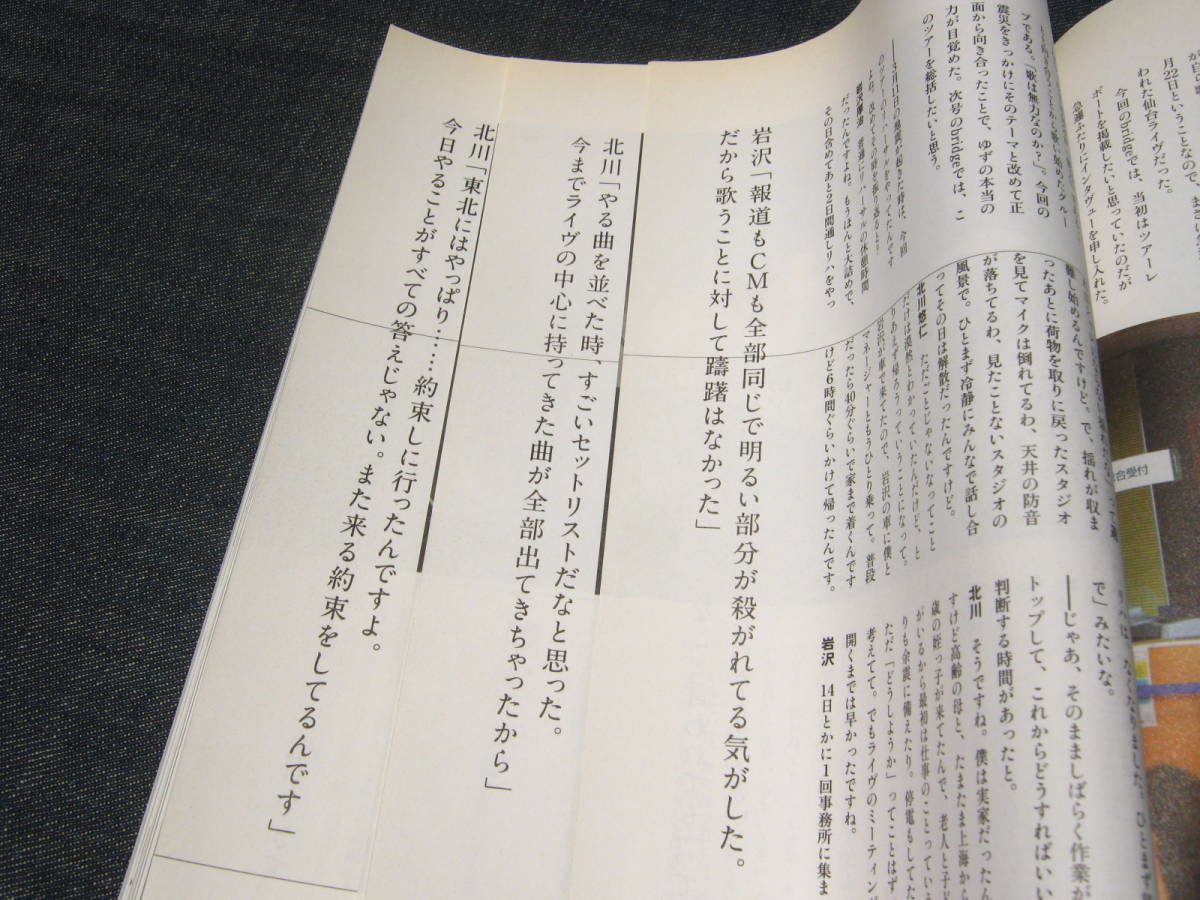 が自
月22日ということなので、
われた仙台ライヴだった。
今回のbridgeでは、当初はツアーレ
ポートを掲載したいと思っていたのだが
急遽ふたりにインタヴューを申し入れた。
合受付
プである。「歌は無力なのか?」。今回の
震災をきっかけにそのテーマと改めて正
面から向き合ったことで、ゆずの本当の
力が目覚めた。次号のbridgeでは、こ
のツアーを総括したいと思う。
――3月11日の地震が起きた時は、今回
のツアーのリハーサルをやってたんです
よね。改めてその時を振り返ると?
岩沢厚治 普通にリハーサルの休憩時間
だったんですよね。もうほんと大詰めで、
その日含めてあと2日間通しリハをやっ
難し始めるんですけど。で、揺れが収ま
ったあとに荷物を取りに戻ったスタジオ
を見てマイクは倒れてるわ、天井の防音
が落ちてるわ、見たことないスタジオの
風景で。ひとまず冷静にみんなで話し合
ってその日は解散だったんですけど。
北川悠仁 ただごとじゃないなってこと
だけは漠然とわかっていたんだけど、と
りあえず帰ろうっていうことになって。
岩沢が車で来てたので、岩沢の車に僕と
マネージャーともうひとり乗って。普段
だったら40分ぐらいで家まで着くんです
けど6時間ぐらいかけて帰ったんです。
で」みたいな。
――じゃあ、そのまましばらく作業が
トップして、これからどうすればいい
判断する時間があったと。
北川 そうですね。僕は実家だったん
すけど高齢の母と、たまたま上海から
歳の姪っ子が来てたんで、老人と子ど
がいるから最初は仕事のことっていう
りも余震に備えたり。停電もしてた
ただ「どうしようか」ってことはず
考えてて。でもライヴのミーティン
開くまでは早かったですね。
岩沢 14日とかに1回事務所に集ま
岩沢「報道もCMも全部同じで明るい部分が殺がれてる気がした。
だから歌うことに対して躊躇はなかった」
北川「やる曲を並べた時、すごいセットリストだなと思った。
今までライヴの中心に持ってきた曲が全部出てきちゃったから」
北川「東北にはやっぱり……約束しに行ったんですよ。
今日やることがすべての答えじゃない。また来る約束をしてるんです」